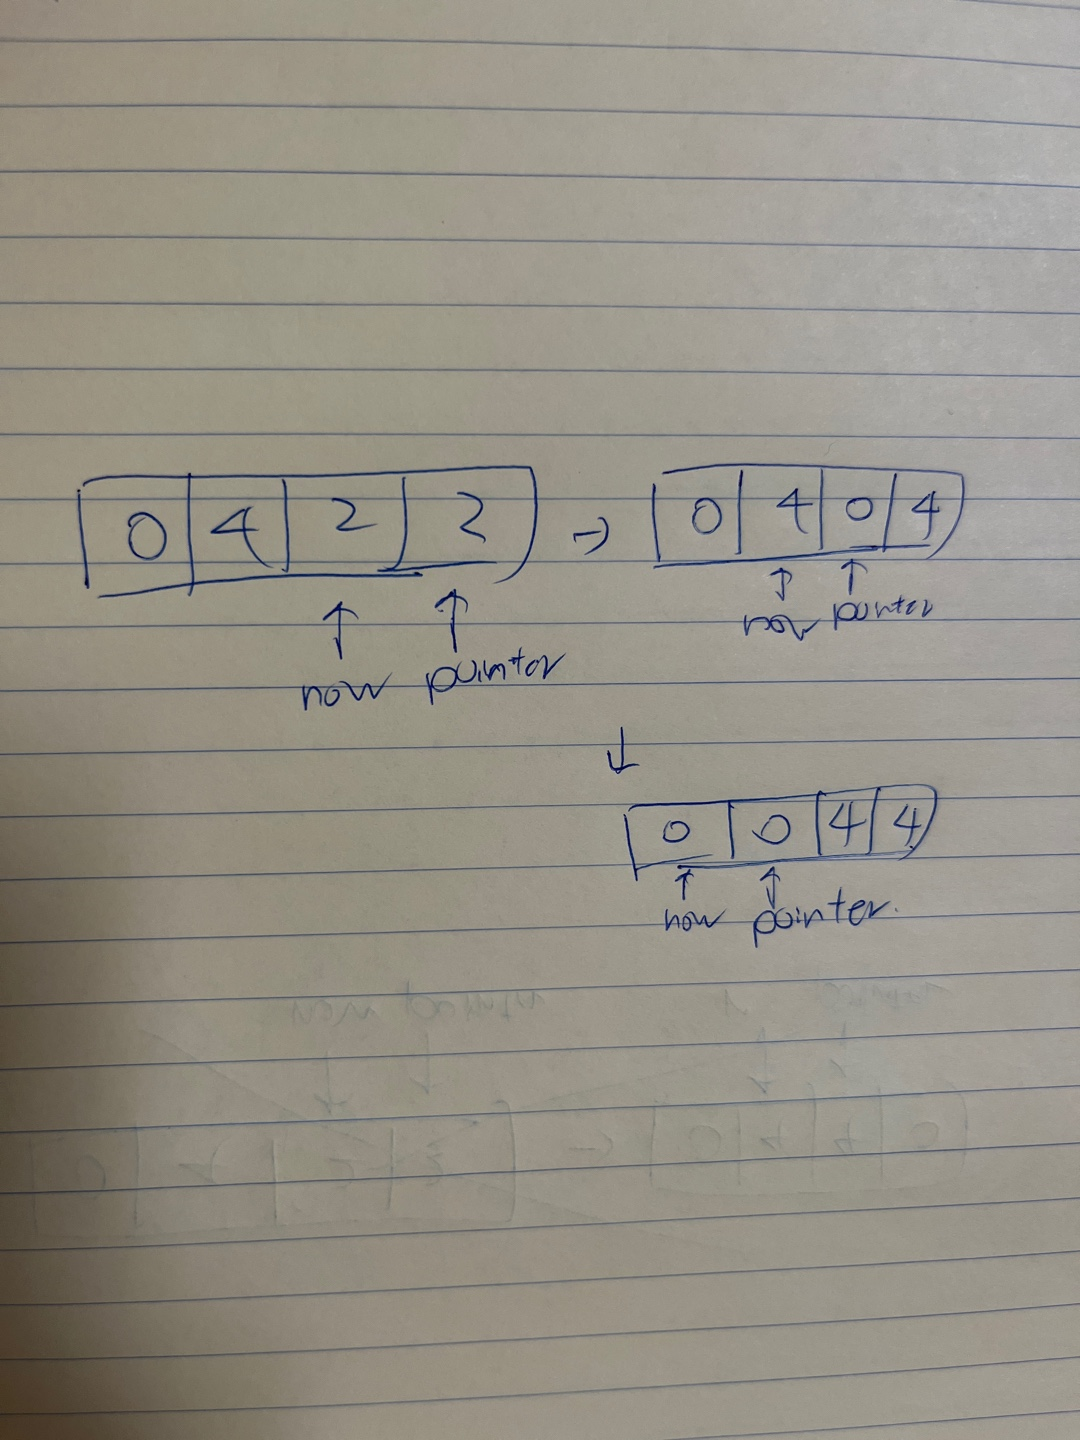 0 4 2 2 → 0 4 0 4
now pointer
now pointer
↓
0 0 4 4
now pointer.